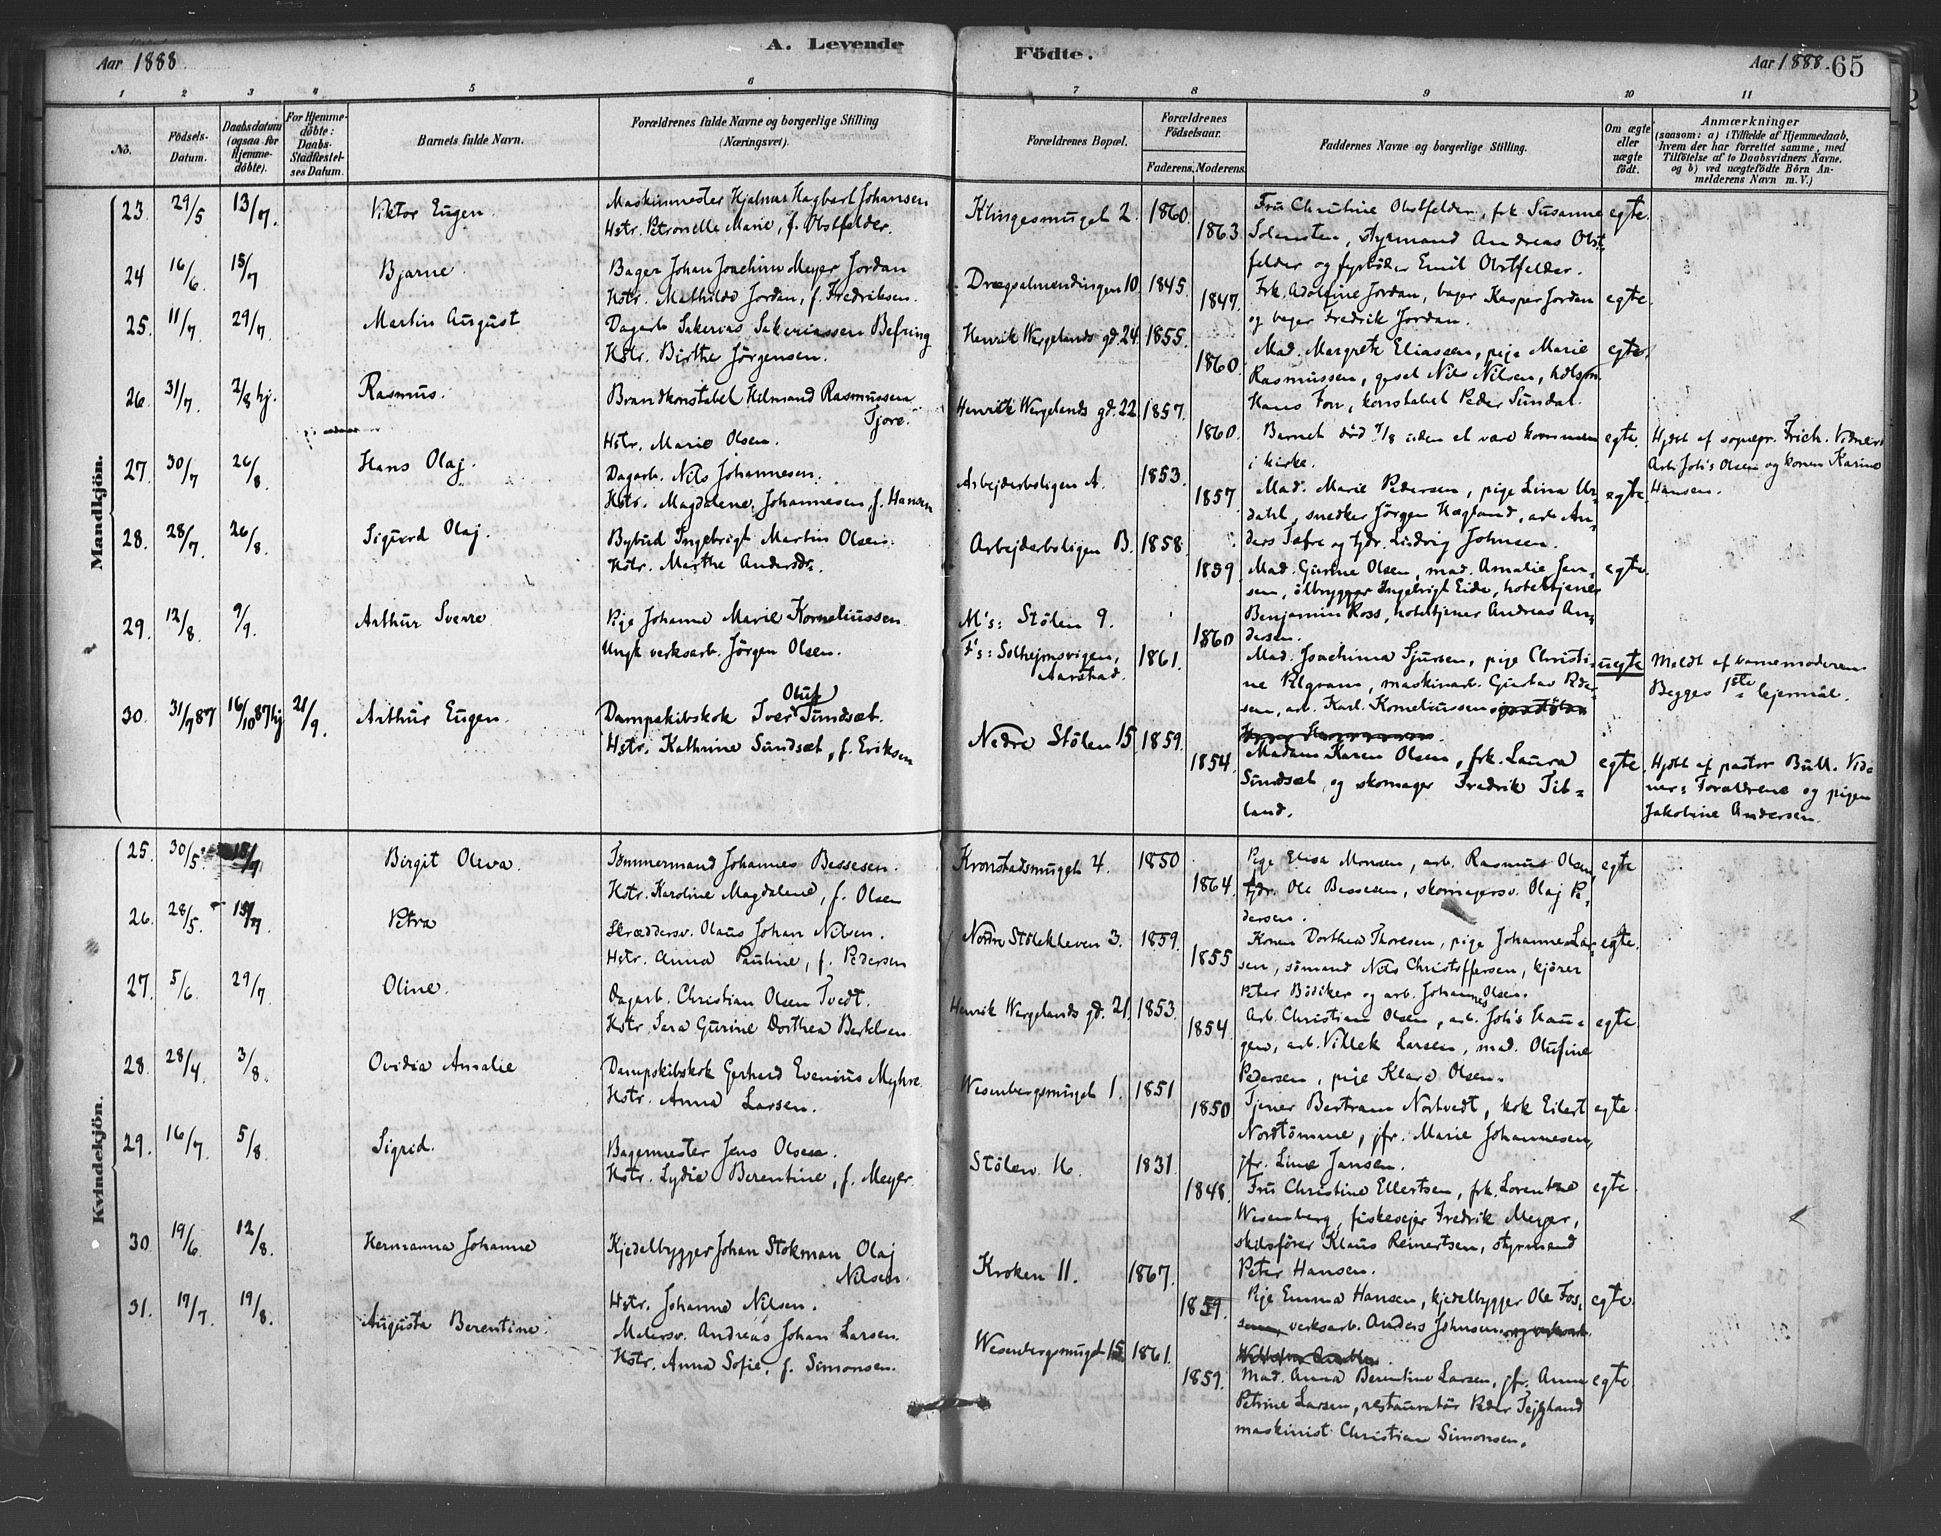 Aar 1888.
A. Levende
Födte.
Aar 1888.
65
1 2 3 4 5 6 7 8 9 10 11
No.
Födsels-Datum.
Daabsdatum (ogsaa for Hjemmedöbte).
For Hjemmedöbte: Daabs-Stadfæstelses Datum.
Barnets fulde Navn.
Forældrenes fulde Navne og borgerlige Stilling (Næringsvei).
Forældrenes Bopæl.
Forældrenes Födselsaar.
Faderens. Moderens.
Faddernes Navne og borgerlige Stilling.
Om ægte eller uægte födt.
Anmærkninger
(saasom: a) i Tilfælde af Hjemmedaab, hvem der har forrettet samme, med Tilföielse af to Daabsvidners Navne, og b) ved uægtefödte Börn Anmelderens Navn m. V.)
Mandkjön.
23. 29/5 13/7. Viktor Eugen
Maskinmester Hjalmar Hagbart Johansen
Hstr. Petronelle Marie, f. Obstfelder.
Klingesmuget 2. 1860. 1863
Fru Christine Obstfelder, frk. Susanne
Solensten, styrmand Andreas Obst-
felder og fyrböder Emil Obstfelder.
egte.
24 16/6. 15/7 Bjarne.
Bager Johan Joachim Meyer Jordan
Hstr. Mathilde Jordan, f. Fredriksen.
Drægsalmendingen 10. 1845. 1847.
Frk. Adolfine Jordan, bager Kasper Jordan
og bager Fredrik Jordan.
egte.
25. 11/7. 29/7. Martin August
Dagarb. Sakerias Sakeriassen Befring
Hstr. Birthe Jörgensen.
Henrik Wergelands gd. 24. 1855. 1860.
Mad. Margrete Eliassen, pige Marie
Rasmussen, gesel Nils Nilsen,
Hans Foss, konstabel Peder Sundal.
egte.
26. 31/7. 2/8 hj. Rasmus.
Brandkonstabel Hilmand Rasmussen
Tjore.
Hstr. Marie Olsen.
Henrik Wergelands gd. 22. 1857. 1860.
Barnet död 7/8 uden at være kommen
i kirke.
egte.
Hjdbt af sognepr. Frich. Vidner:
Arb. Joh's Olsen og konen Karine
Hansen.
27. 30/7 26/8. Hans Olaj.
Dagarb. Nils Johannesen.
Hstr. Magdalene Johannesen, f. Hansen
Arbejderboligen A. 1853. 1857
Mad. Marie Pedersen, pige Lina Ur-
dahl, snedker Jörgen Hægland, arb. An-
ders Tofre og tjdr. Ludvig Johnsen.
egte.
28. 28/7. 26/8. Sigurd Olaj.
Bybud Ingebrigt Martin Olsen.
Hstr. Marthe Andersdr.
Arbejderboligen B. 1858. 1859
Mad. Gurine Olsen, mad. Amalie Jen-
sen, ölbrygger Ingebrigt Eide, hoteltjener
Benjamin Ross, hoteltjener Andreas An-
dersen.
egte.
29. 12/8. 9/9. Arthur Sverre
Pige Johanne Marie Korneliussen.
Ungk. verksarb. Jörgen Olsen.
M's: Stölen 9.
F's: Solhejmsvigen,
Aarstad.
1861. 1860
Mad. Joachima Sjursen, pige Christi-
ne Pilgram, maskinarb. Gustav Peder-
sen, arb. Karl Korneliussen
uegte
Meldt af barnemoderen
Begges 1ste lejermål.
30. 31/787 16/1087 hj 21/9. Arthur Eugen.
Dampskibskok Iver Oluf Sundsæt.
Hstr. Kathrine Sundsæt, f. Eriksen
Nedre Stölen 15. 1859. 1854.
Madam Karen Olsen, frk. Laura
Sundsæt, og skomager Fredrik Tib-
land.
egte.
Hjdbt af pastor Bull. Vid-
ner: Forældrene og pigen
Jakobine Andersen.
Kvindekjön.
25. 30/5. 15/7. Birgit Oliva.
Tömmermand Johannes Bessesen.
Hstr. Karoline Magdalene, f. Olsen
Kronstadsmuget 4. 1850 1864.
Pige Elisa Monsen, arb. Rasmus Olsen,
tjdr. Ole Bessesen, skomagersv. Olaj Pe-
dersen.
egte
26. 28/5. 15/7. Petra
Skræddersv. Olaus Johan Nilsen.
Hstr. Anna Pauline, f. Pedersen
Nordre Stölekleven 3. 1859. 1855
Konen Dorthea Thoresen, pige Johanne Lar-
sen, sömand Nils Christoffersen, kjörer
Peter Bödiker og arb. Johannes Olsen.
egte.
27. 5/6. 29/7 Oline.
Dagarb. Christian Olsen Tvedt.
Hstr. Sara Gurine Dorthea Bertelsen
Henrik Wergelands gd. 21. 1853. 1854.
Arb. Christian Olsen, arb. Joh's Hau-
gen, arb. Villek Larsen, mad. Olufine
Pedersen, pige Klara Olsen.
egte.
28. 28/4. 3/8. Ovidia Amalie
Dampskibskok Gerhard Evenius Myhre.
Hstr. Anna Larsen.
Wesenbergsmuget 1. 1851 1850
Tjener Bertram Nortvedt, kok Eilert
Nordtömme, jfr. Marie Johannesen,
jfr. Line Jansen.
egte.
29. 16/7. 5/8. Sigrid.
Bagermester Jens Olsen.
Hstr. Lydia Berentine, f. Meyer.
Stölen 16. 1831. 1848.
Fru Christine Ellertsen, frk. Lorentze
Wesenberg, fiskeejer Fredrik Meyer,
skibsförer Klaus Reinertsen, styrmand
Peter Hansen.
egte.
30 19/6. 12/8. Hermanna Johanne
Kjedelbygger Johan Stokman Olaj
Nilsen.
Hstr. Johanne Nilsen.
Kroken 11. 1867. 1859.
Pige Emma Hansen, kjedelbygger Ole Fos-
sem, verksarb. Anders Johnsen
egte.
31. 17/7. 19/8. Augusta Berentine.
Malersv. Andreas Johan Larsen.
Hstr. Anna Sofie, f. Simonsen.
Wesenbergsmuget 15. 1861. 1859.
Mad. Anna Berentine Larsen, jfr. Anne
Petrine Larsen, restauratör Peder Tejgland
maskinist Christian Simonsen.
egte.